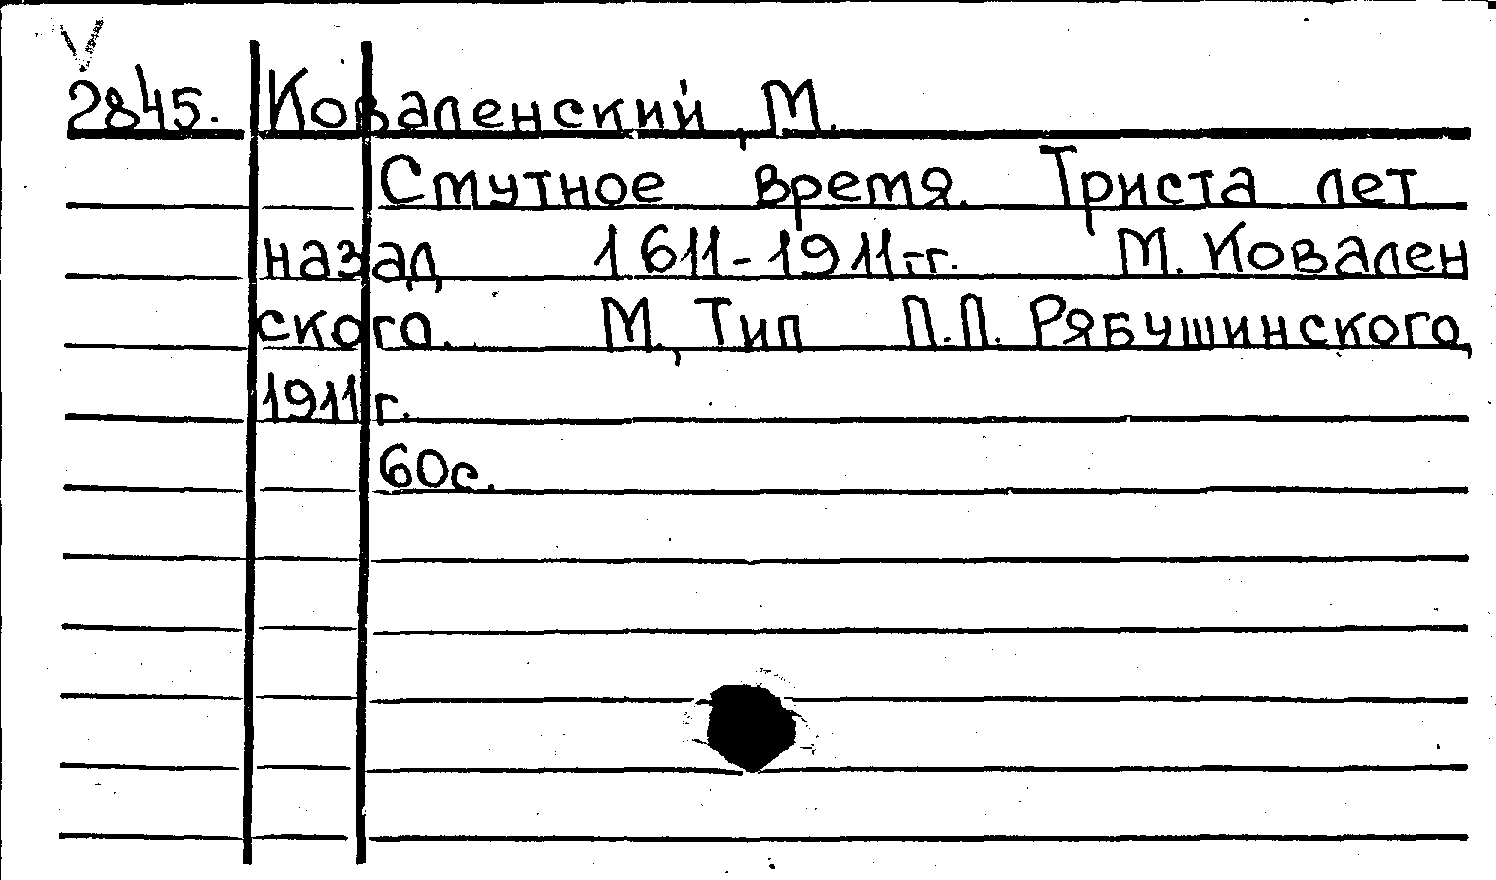 2845. Коваленский, М.
Смутное время. Триста лет
назад 1611-1911 гг. М. Ковален
ского. М., Тип П.П. Рябушинского,
1911 г.
60с.